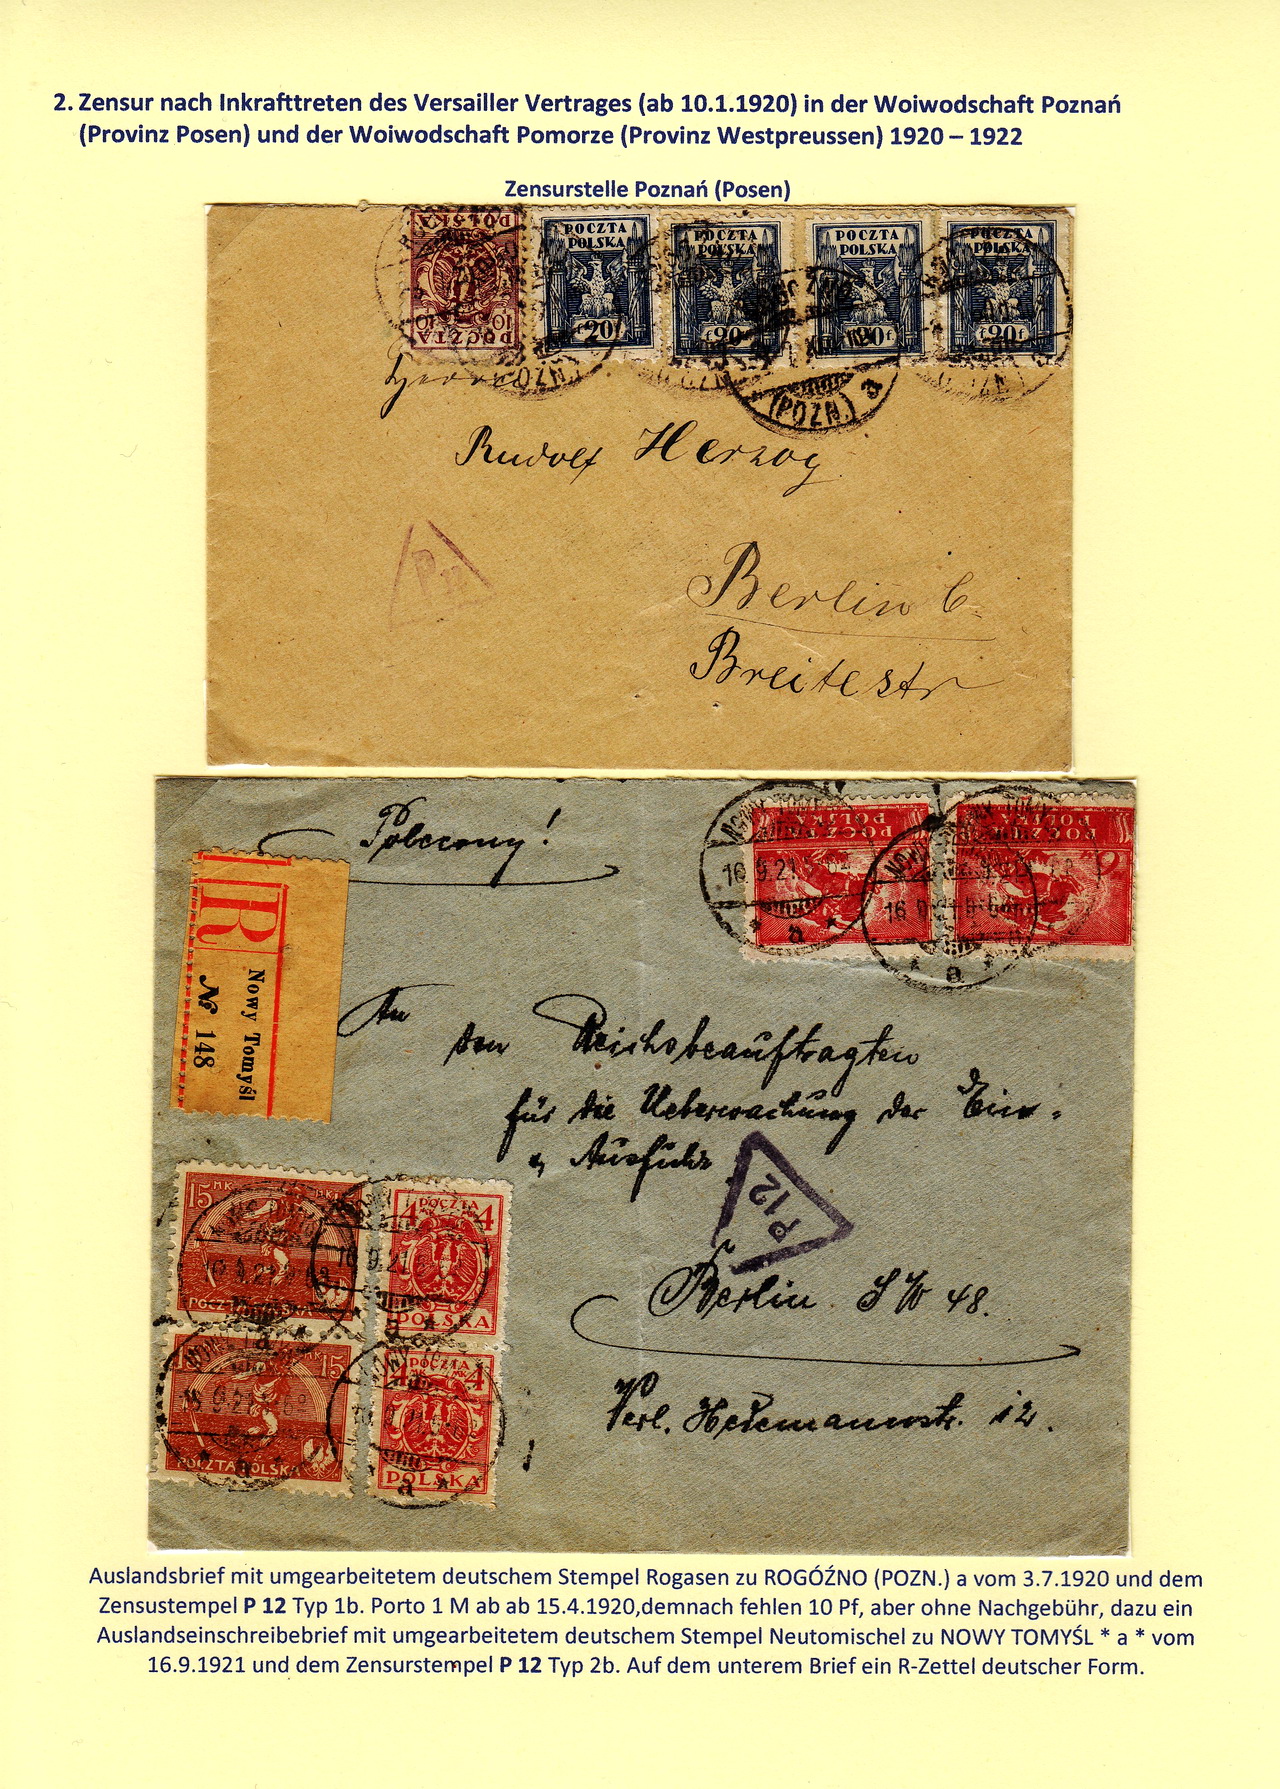 2. Zensur nach Inkrafttreten des Versailler Vertrages (ab 10.1.1920) in der Woiwodschaft Poznań
(Provinz Posen) und der Woiwodschaft Pomorze (Provinz Westpreussen) 1920 – 1922
Zensurstelle Poznań (Posen)
POCZTA
POLSKA
10 10
POCZTA
POLSKA
20
POCZTA
POLSKA
f 20
POCZTA
POLSKA
POCZTA
POLSKA
f 20 f
(POZN.) a
Rudolf Herzog
P 12
Berlin C.
Breitestr
Polecony!
R
Nowy Tomyśl
№ 148
POCZTA
POLSKA
POCZTA
POLSKA
NOWY TOMYŚL
16.9.21
* a *
16.9.21
* a *
An
den Reichsbeauftragten
für die Ueberwachung der Ein-
u, Ausfuhr
P 12
Berlin SW 48.
Verl. Hedemannstr. 12.
15 MK
POCZTA POLSKA
POCZTA
4 4
POLSKA
15
POCZTA POLSKA
POCZTA
4 MK MK 4
POLSKA
Auslandsbrief mit umgearbeitetem deutschem Stempel Rogasen zu ROGÓŹNO (POZN.) a vom 3.7.1920 und dem
Zensustempel P 12 Typ 1b. Porto 1 M ab ab 15.4.1920,demnach fehlen 10 Pf, aber ohne Nachgebühr, dazu ein
Auslandseinschreibebrief mit umgearbeitetem deutschem Stempel Neutomischel zu NOWY TOMYŚL * a * vom
16.9.1921 und dem Zensurstempel P 12 Typ 2b. Auf dem unterem Brief ein R-Zettel deutscher Form.